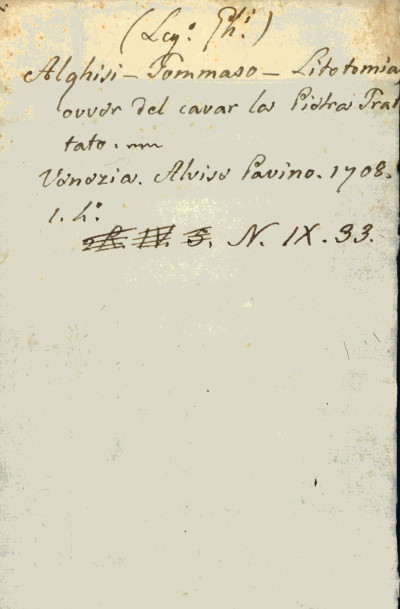 (Leg.º Ph.i)
Alghisi - Tommaso - Litotomia,
ovver del cavar la Pietra Trat
tato.
Venezia. Alvise Pavino. 1708.
1. 4.º
N. IX. 33.